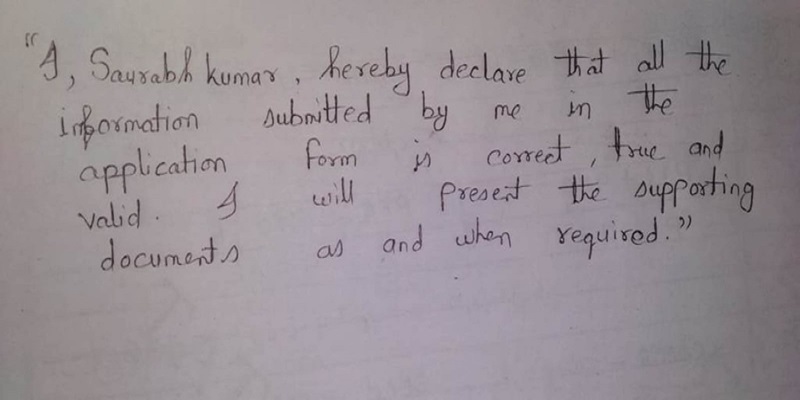 "I, Saurabh kumar, hereby declare that all the
information submitted by me in the
application form is correct, true and
valid. I will present the supporting
documents as and when required."